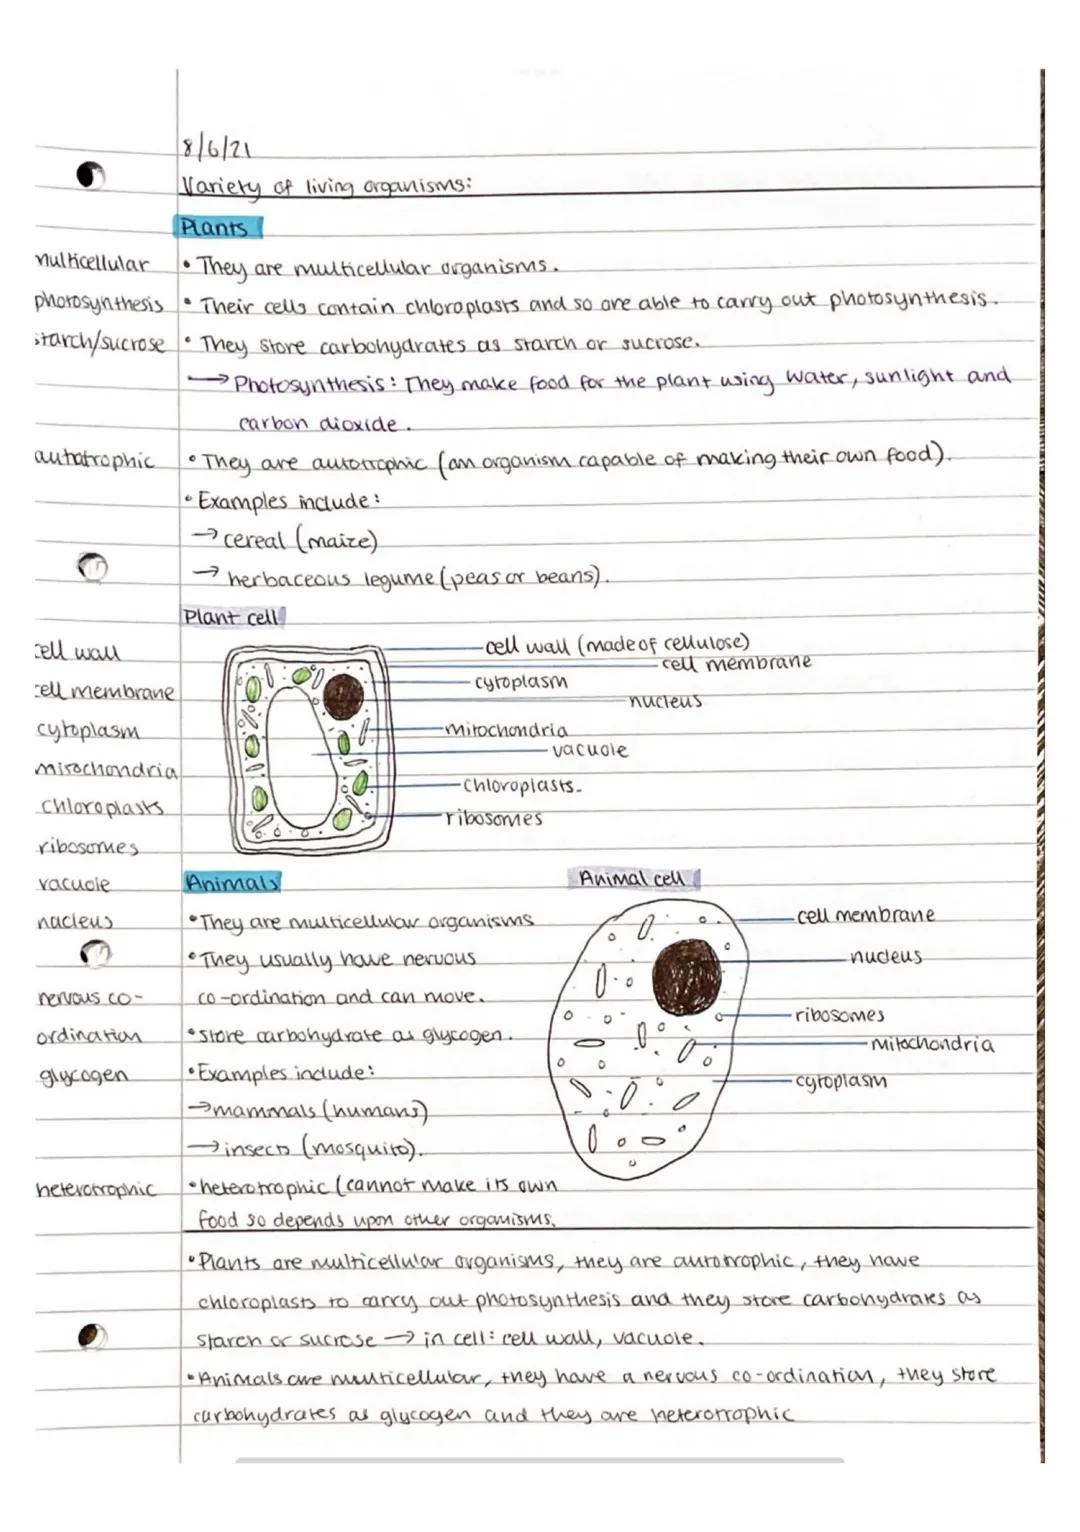 8/6/21
Variety of living organisms:
Plants
multicellular
• They are multicellular organisms.
photosynthesis
• Their cells contain chloroplasts and so are able to carry out photosynthesis.
starch/sucrose
• They store carbohydrates as starch or sucrose.
→ Photosynthesis: They make food for the plant using water, sunlight and
carbon dioxide.
autotrophic
• They are autotrophic (an organism capable of making their own food).
• Examples include:
→ cereal (maize)
→ herbaceous legume (peas or beans).
Plant cell
cell wall
cell membrane
cytoplasm
mitochondria
chloroplasts
ribosomes
vacuole
nucleus
cell wall (made of cellulose)
cell membrane
cytoplasm
nucleus
mitochondria
vacuole
chloroplasts.
ribosomes
Animals
• They are multicellular organisms
• They usually have nervous
co-ordination and can move.
nervous co-
ordination
• store carbohydrate as glycogen.
glycogen
• Examples include:
→ mammals (humans)
→ insects (mosquito).
heterotrophic
• heterotrophic (cannot make its own
food so depends upon other organisms.
Animal cell
cell membrane
nucleus
ribosomes
mitochondria
cytoplasm
• Plants are multicellular organisms, they are autotrophic, they have
chloroplasts to carry out photosynthesis and they store carbohydrates as
starch or sucrose → in cell: cell wall, vacuole.
• Animals are multicellular, they have a nervous co-ordination, they store
carbohydrates as glycogen and they are heterotrophic